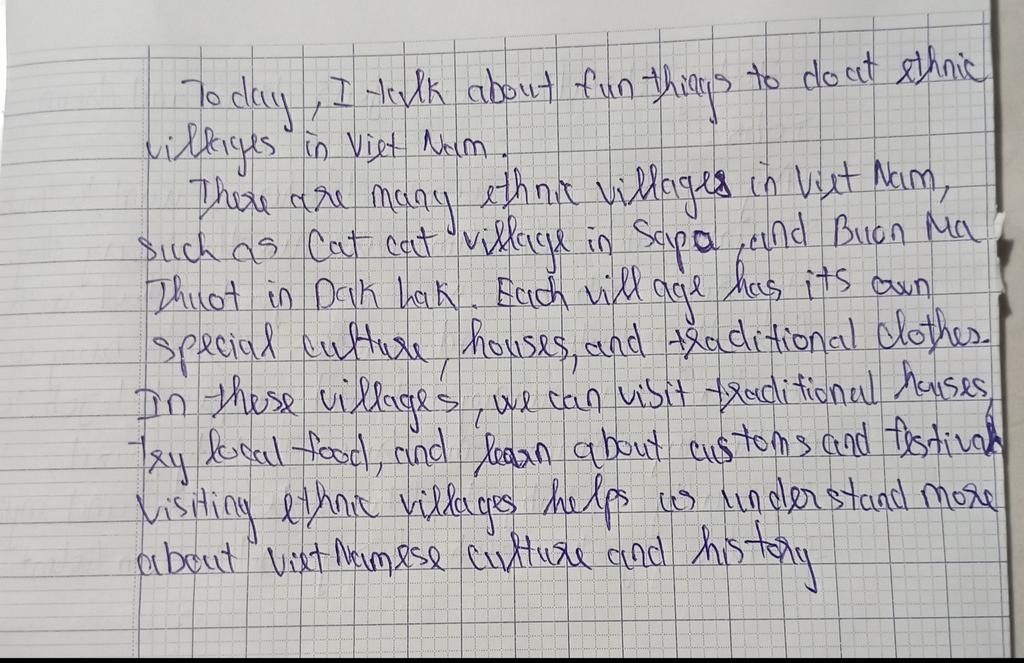 Today, I talk about fun things to do at ethnic
villages in Viet Nam.
There are many ethnic villages in Viet Nam,
such as Cat cat village in Sapa, and Buon Ma
Thuot in Dak Lak. Each village has its own
special culture, houses, and traditional clothes.
In these villages, we can visit traditional houses,
try local food, and learn about customs and festival
Visiting ethnic villages helps us understand more
about Viet Namese culture and history